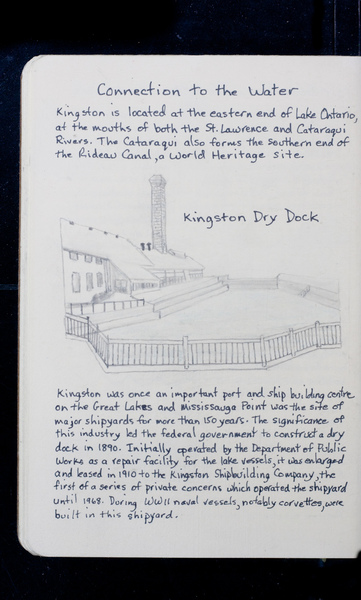 Connection to the Water
Kingston is located at the eastern end of Lake Ontario,
at the mouths of both the St. Lawrence and Cataraqui
Rivers. The Cataraqui also forms the southern end of
the Rideau Canal, a World Heritage site.
Kingston Dry Dock
Kingston was once an important port and ship building centre
on the Great Lakes and Mississauga Point was the site of
major shipyards for more than 150 years. The significance of
this industry led the federal government to construct a dry
dock in 1890. Initially operated by the Department of Public
Works as a repair facility for the lake vessels, it was enlarged
and leased in 1910 to the Kingston Shipbuilding Company, the
first of a series of private concerns which operated the shipyard
until 1968. During WWII naval vessels, notably corvettes, were
built in this shipyard.